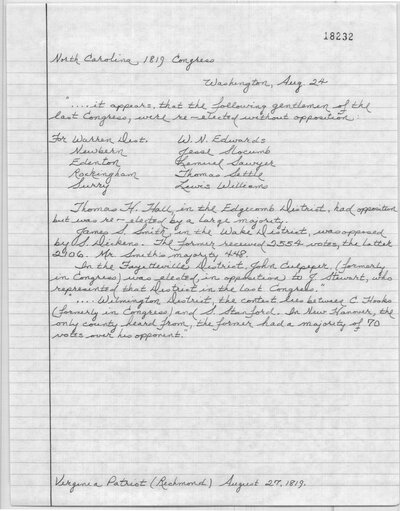 18232
North Carolina, 1819 Congress
Washington, Aug. 24
"....it appears, that the following gentlemen of the
last Congress, were re-elected without opposition:
For Warren Dist. W. N. Edwards
Newbern Jesse Slocumb
Edenton Lemuel Sawyer
Rockingham Thomas Settle
Surry Lewis Williams
Thomas H. Hall, in the Edgecomb District, had opposition
but was re-elected by a large majority.
James S. Smith, in the Wake District, was opposed
by S. Dickens. The former received 2554 votes, the latter
2106. Mr. Smith's majority 448.
In the Fayetteville District, John Culpeper, (formerly
in Congress) was elected in opposition to J. Stewart, who
represented that District in the last Congress."
"....Wilmington District, the contest lies between C. Hooks
(formerly in Congress) and S. Stanford. In New Hanover, the
only county heard from, the former had a majority of 70
votes over his opponent."
Virginia Patriot (Richmond) August 27, 1819.